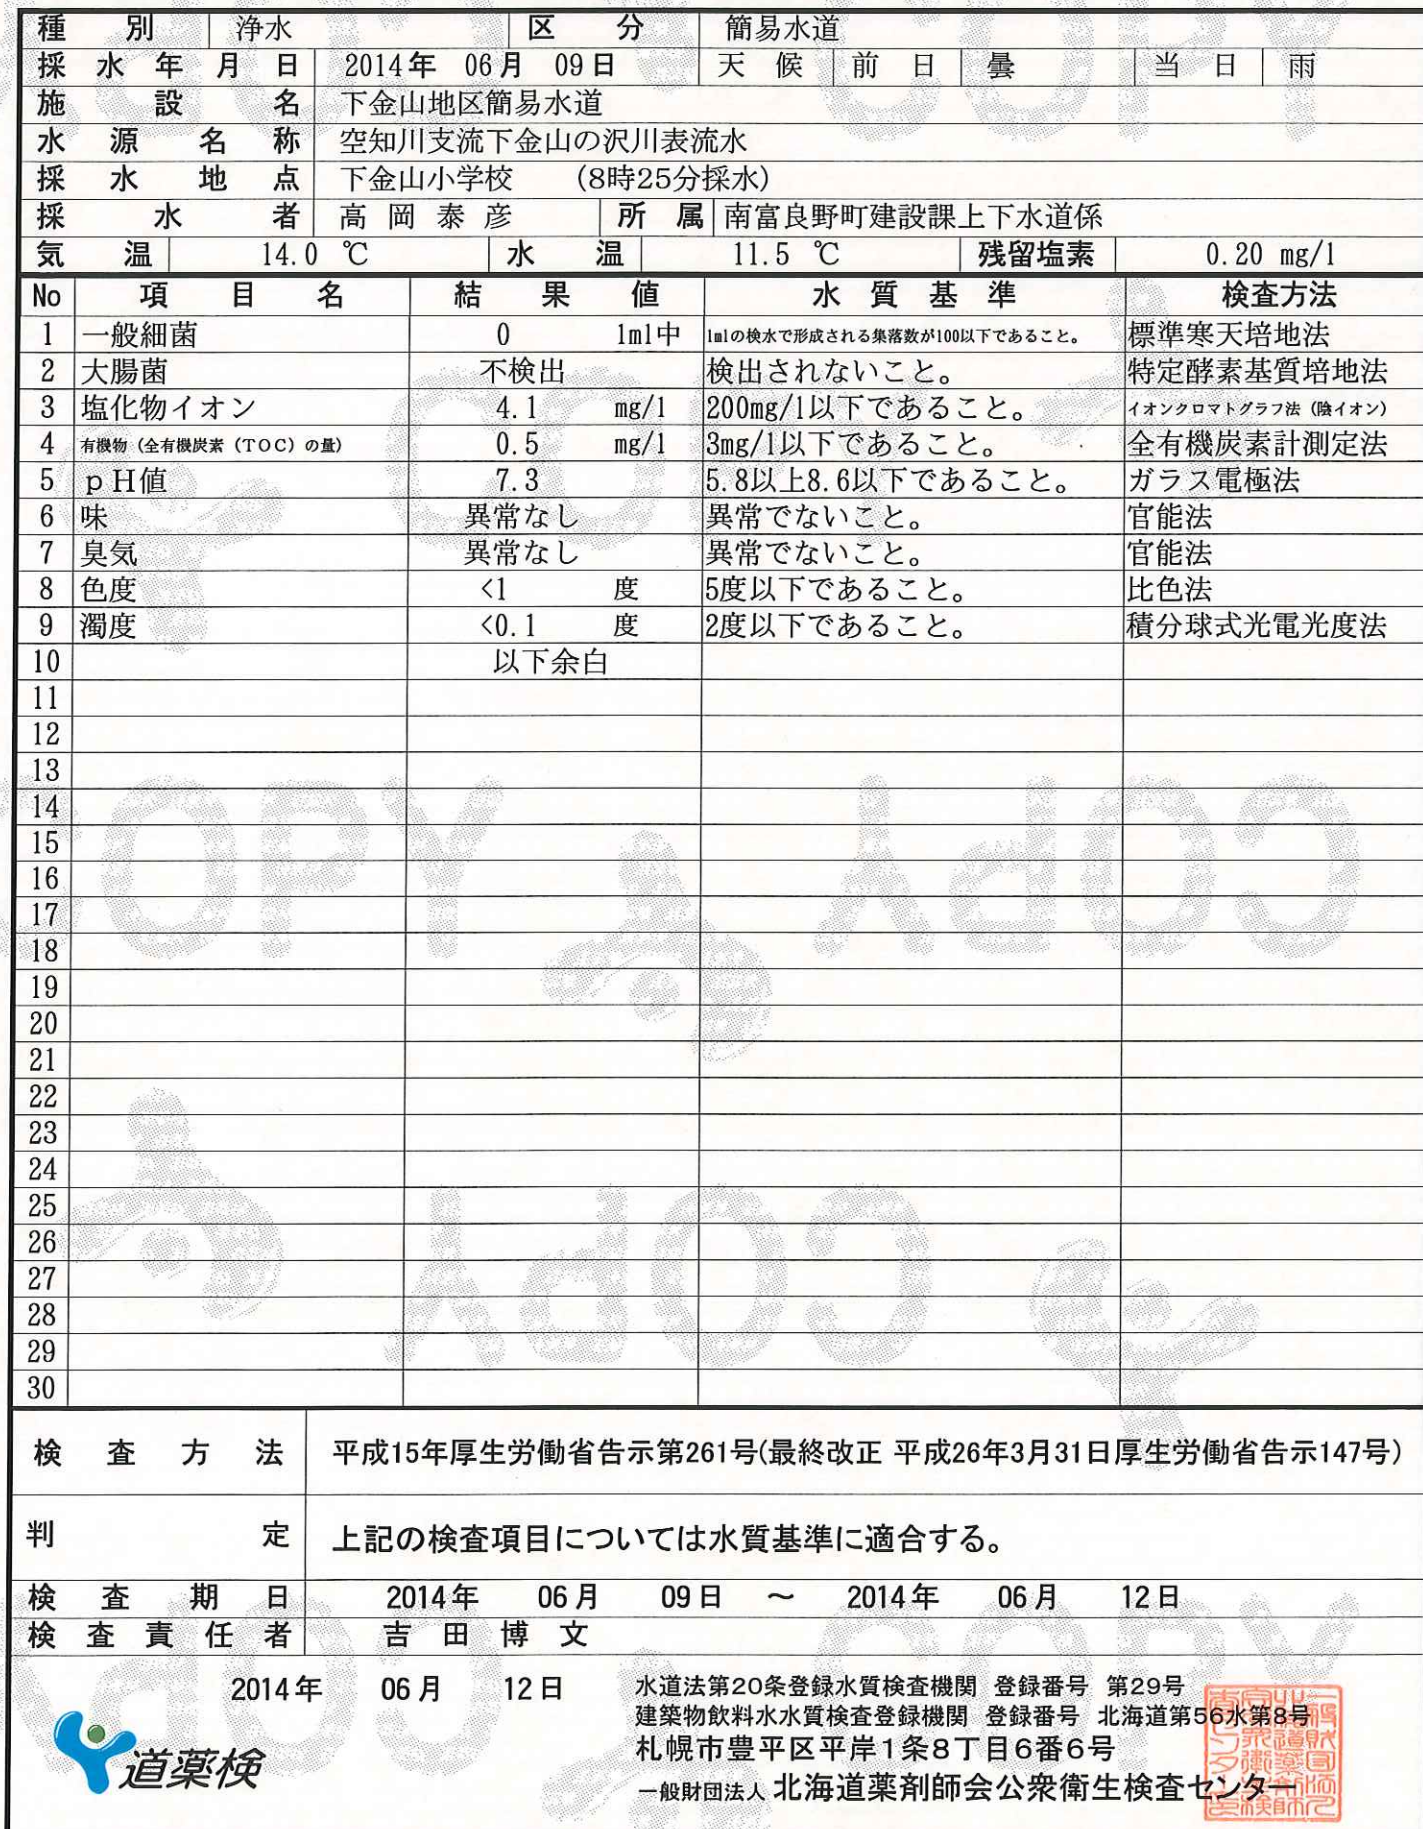 種別 浄水 区分 簡易水道
採水年月日 2014年 06月 09日 天候 前日 曇 当日 雨
施設名 下金山地区簡易水道
水源名称 空知川支流下金山の沢川表流水
採水地点 下金山小学校 (8時25分採水)
採水者 高岡泰彦 所属 南富良野町建設課上下水道係
気温 14.0 ℃ 水温 11.5 ℃ 残留塩素 0.20 mg/l
No 項目名 結果値 水質基準 検査方法
1 一般細菌 0 1ml中 1mlの検水で形成される集落数が100以下であること。 標準寒天培地法
2 大腸菌 不検出 検出されないこと。 特定酵素基質培地法
3 塩化物イオン 4.1 mg/l 200mg/l以下であること。 イオンクロマトグラフ法(陰イオン)
4 有機物(全有機炭素(TOC)の量) 0.5 mg/l 3mg/l以下であること。 全有機炭素計測定法
5 pH値 7.3 5.8以上8.6以下であること。 ガラス電極法
6 味 異常なし 異常でないこと。 官能法
7 臭気 異常なし 異常でないこと。 官能法
8 色度 <1 度 5度以下であること。 比色法
9 濁度 <0.1 度 2度以下であること。 積分球式光電光度法
10 以下余白
11
12
13
14
15
16
17
18
19
20
21
22
23
24
25
26
27
28
29
30
検査方法 平成15年厚生労働省告示第261号(最終改正 平成26年3月31日厚生労働省告示147号)
判定 上記の検査項目については水質基準に適合する。
検査期日 2014年 06月 09日 ~ 2014年 06月 12日
検査責任者 吉田博文
2014年 06月 12日
水道法第20条登録水質検査機関 登録番号 第29号
建築物飲料水水質検査登録機関 登録番号 北海道第56水第8号
札幌市豊平区平岸1条8丁目6番6号
一般財団法人 北海道薬剤師会公衆衛生検査センター
道薬検
COPY